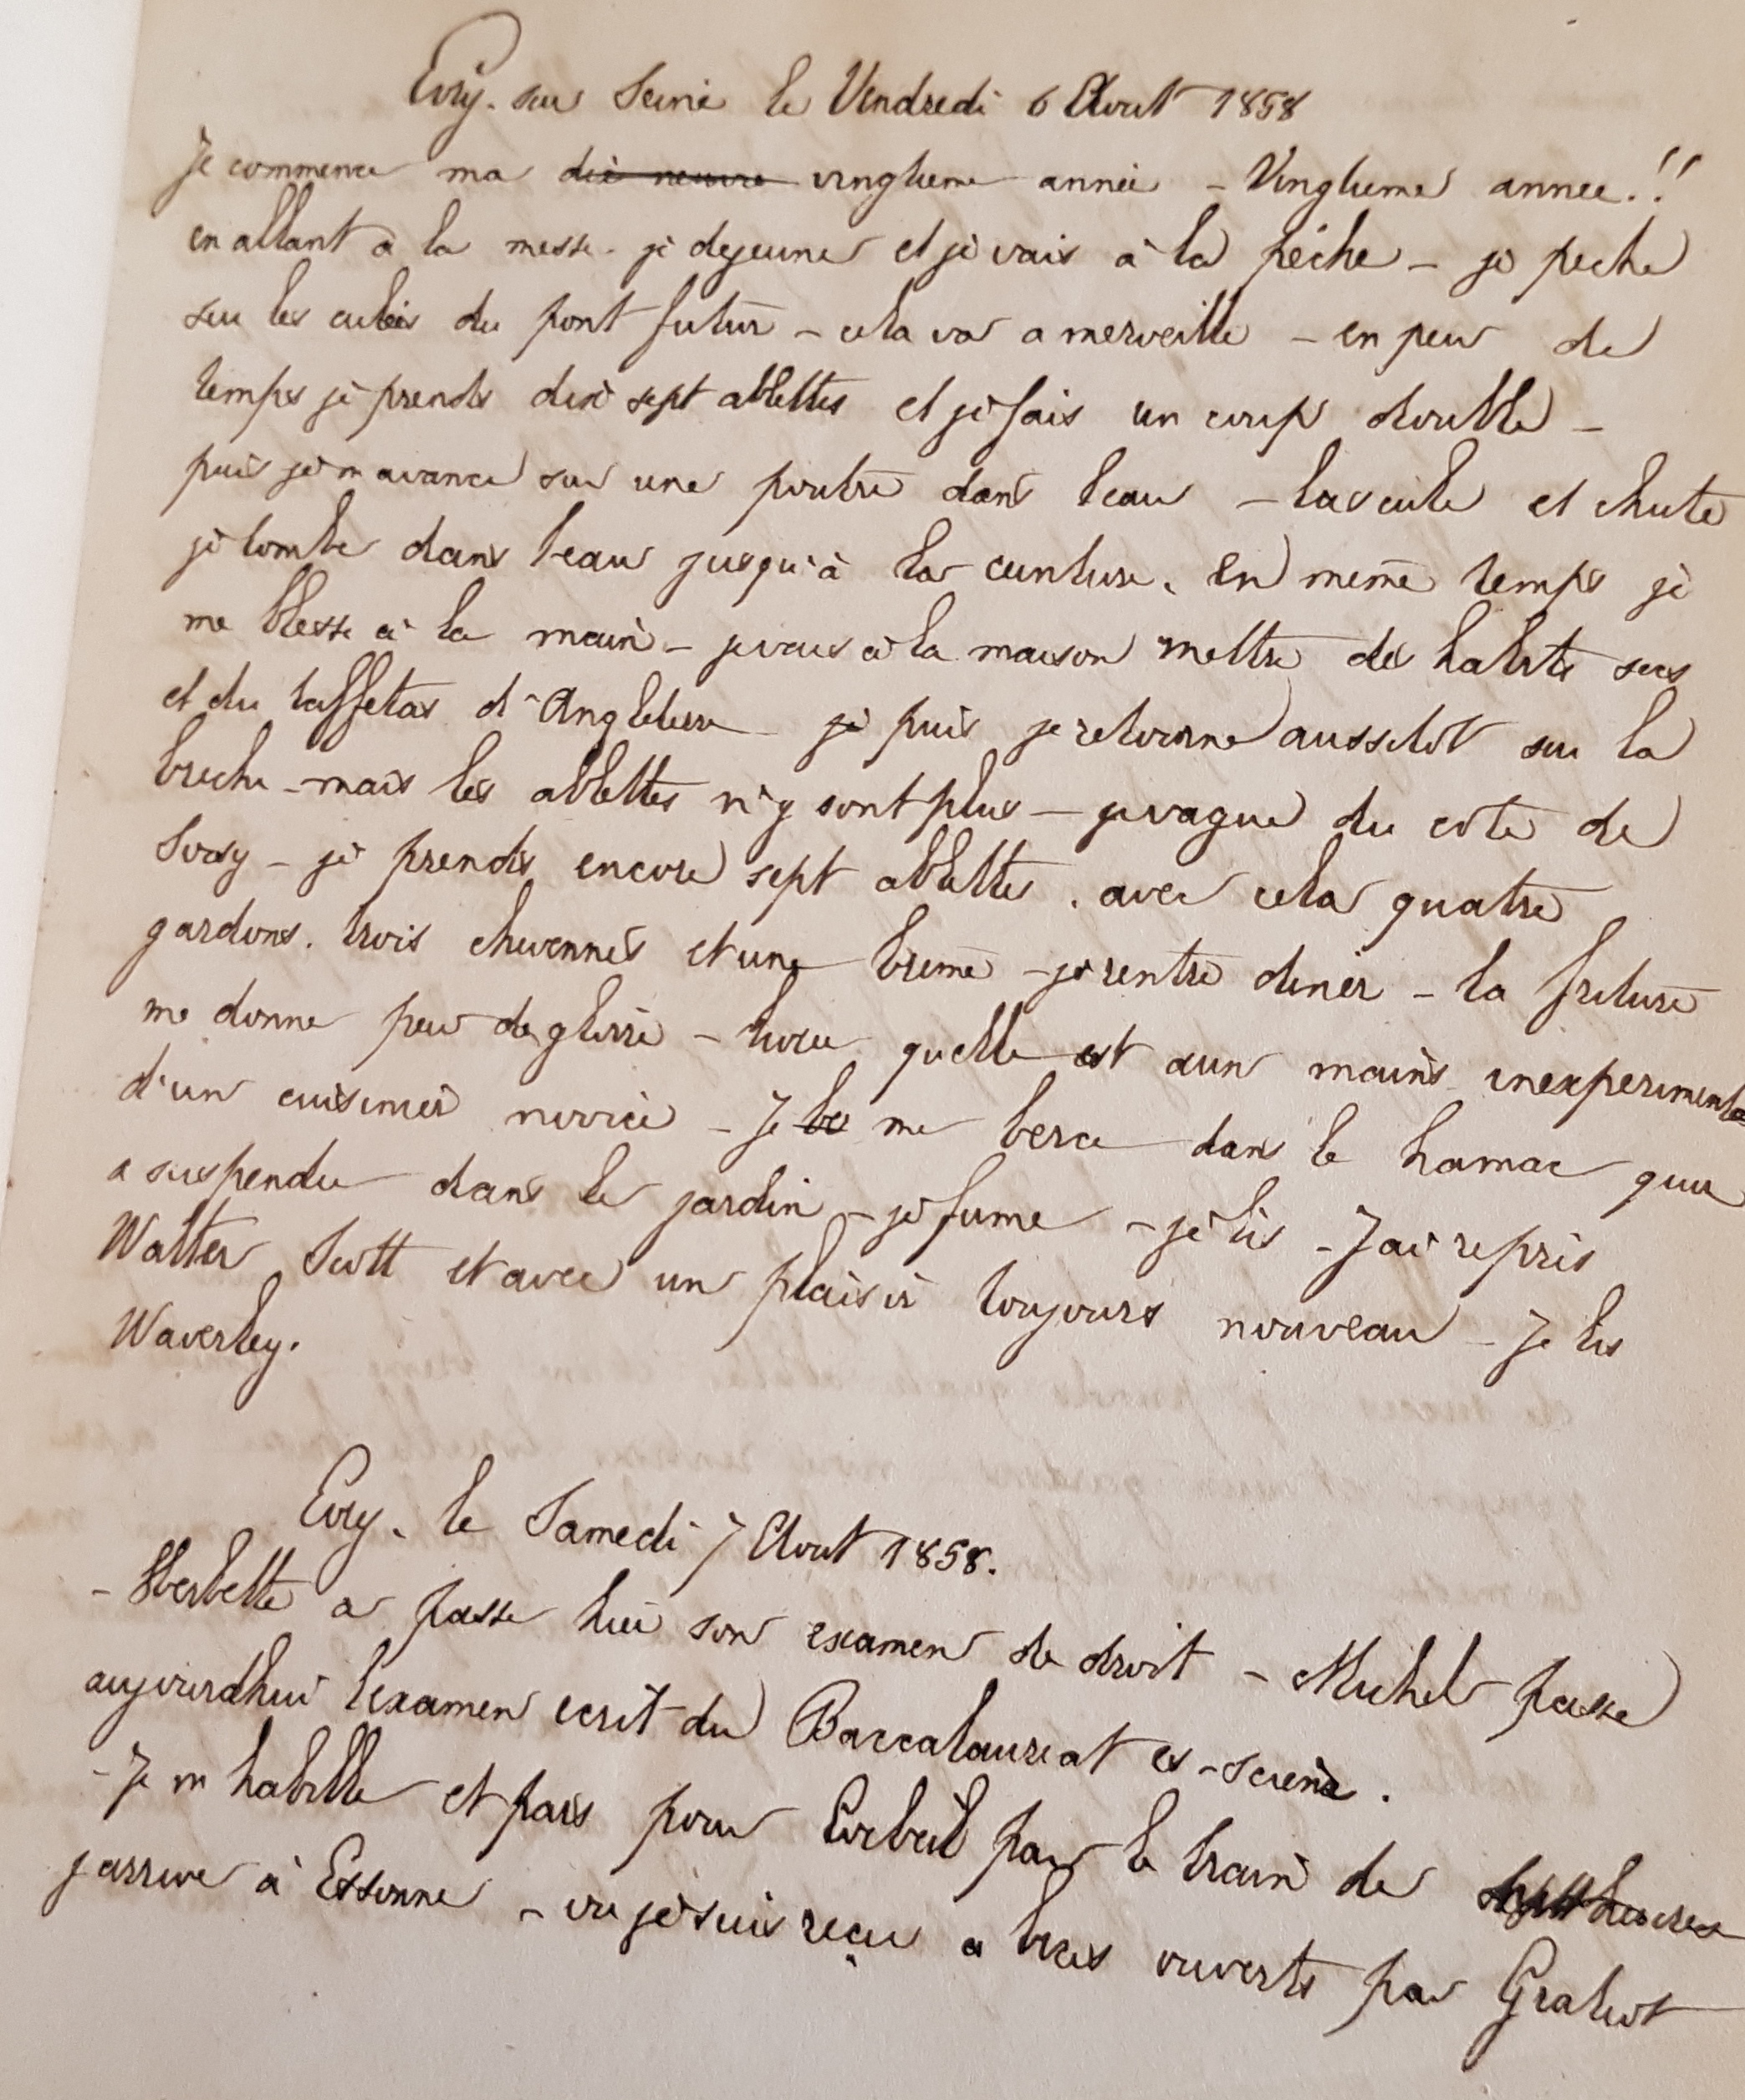 Evry. sur Seine le Vendredi 6 Aout 1858
Je commence ma dix neuvie vingtieme année - Vingtieme annee.!!
en allant à la messe - je dejeune et je vais à la pêche - je peche
sur les culées du pont futur - cela va a merveille - en peu de
temps je prends dix sept ablettes et je fais un coup double -
puis je m avance sur une poutre dans l eau - bascule et chute
je tombe dans l'eau jusqu'à la ceinture. En même temps je
me blesse à la main - je vais à la maison mettre des habits secs
et du taffetas d'Angleterre je puis je retourne aussitôt sur la
breche - mais les ablettes n'y sont plus - je vague du coté de
Soisy - je prends encore sept ablettes. avec cela quatre
gardons. trois chevennes et une breme - je rentre diner - la friture
me donne peu de gloire - livrée quelle est aux mains inexperimentées
d'un cuisinier novice - Je be me berce dans le hamac que
a suspendu dans le jardin - je fume - je lis - J'ai repris
Walter Scott et avec un plaisir toujours nouveau - Je lis
Waverley.
Evry. le Samedi 7 Aout 1858.
- Herbette a passe hier son examen de droit - Michel passe
aujourdhui l'examen ecrit du Baccalaureat es - Science.
- Je m habille et pars pour Corbeil par le train de sept heures
j arrive à Essonne - ou je suis reçu a bras ouverts par Gratiot